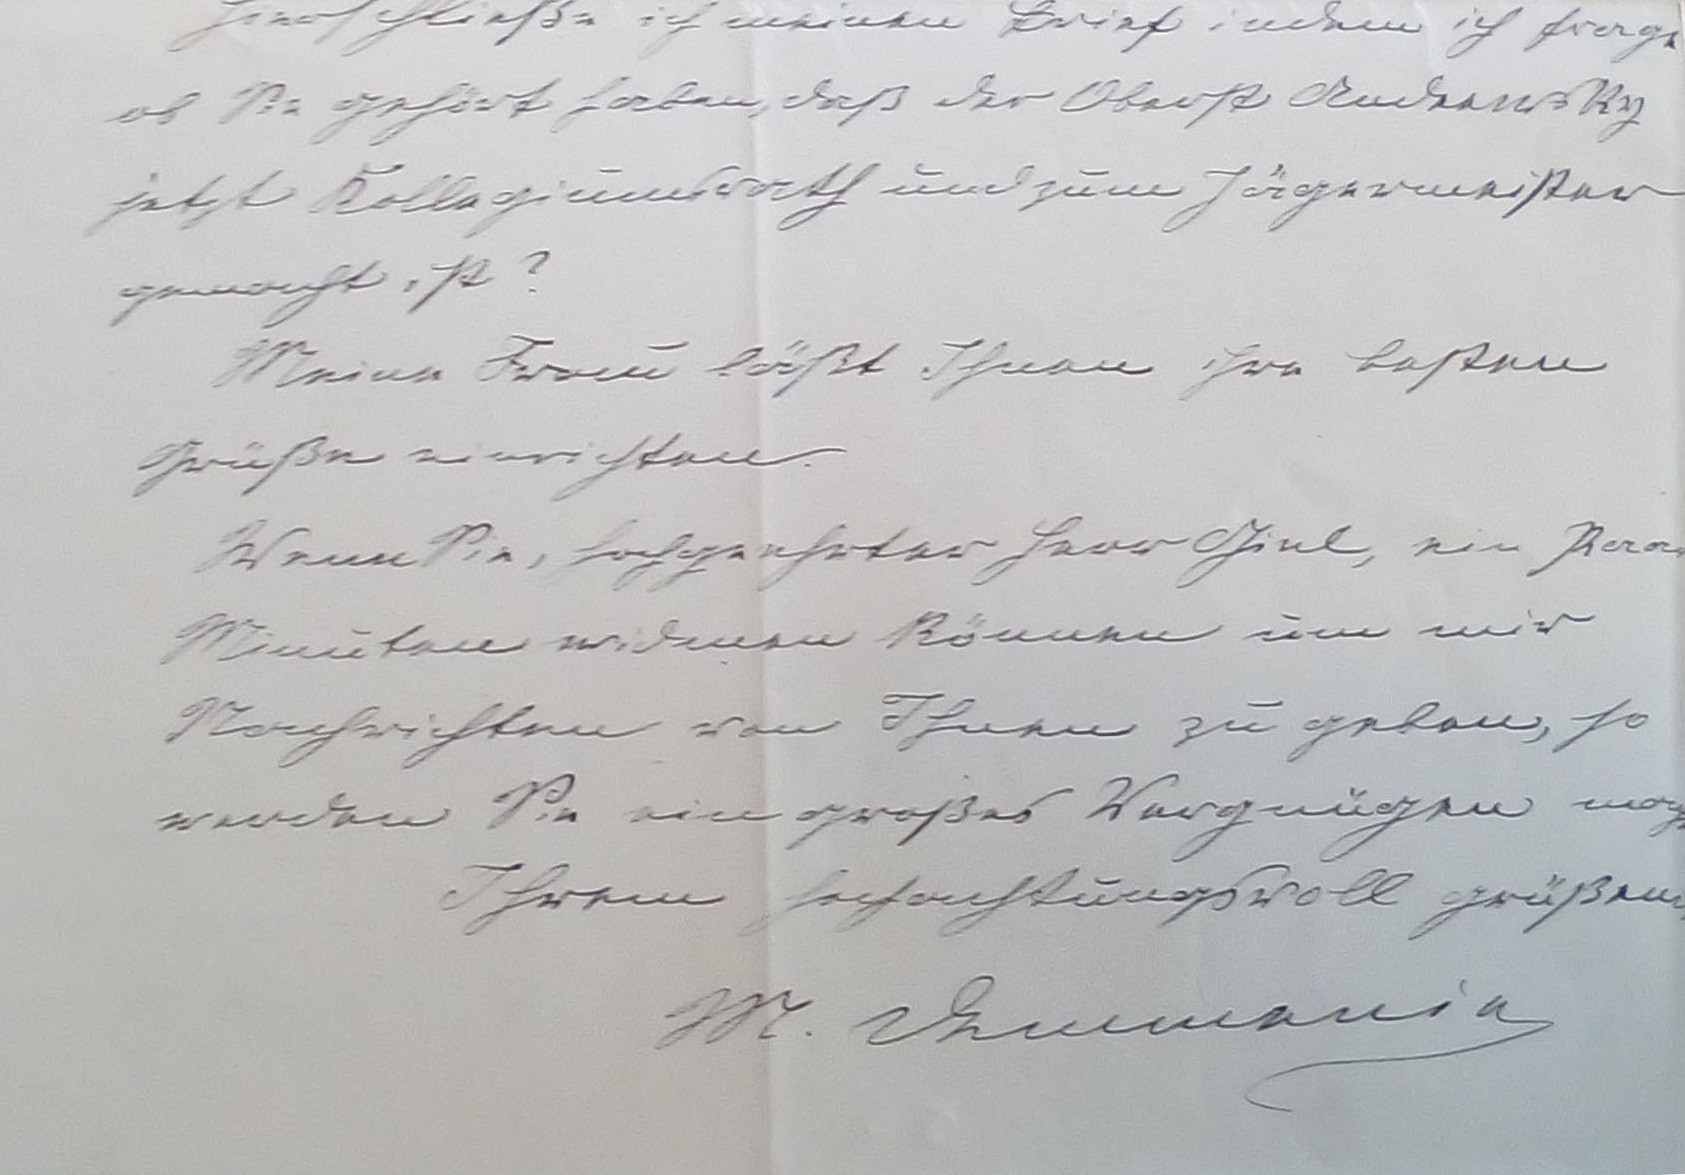 Hierschließe ich meinen Brief indem ich frage
ob Sie gehört haben, daß der Oberst
jetzt Kollegiumsrath und zum Jägermeister
gemacht ist?
Meine Frau läßt Ihnen ihre besten
Grüße einrichten.
Wenn Sie, hochgeehrter Herr ein Paar
Minuten widmen können um mir
Nachrichten von Ihnen zu geben, so
werden Sie ein großes Vergnügen mach
Ihrem hochachtungsvoll grüßend
M.